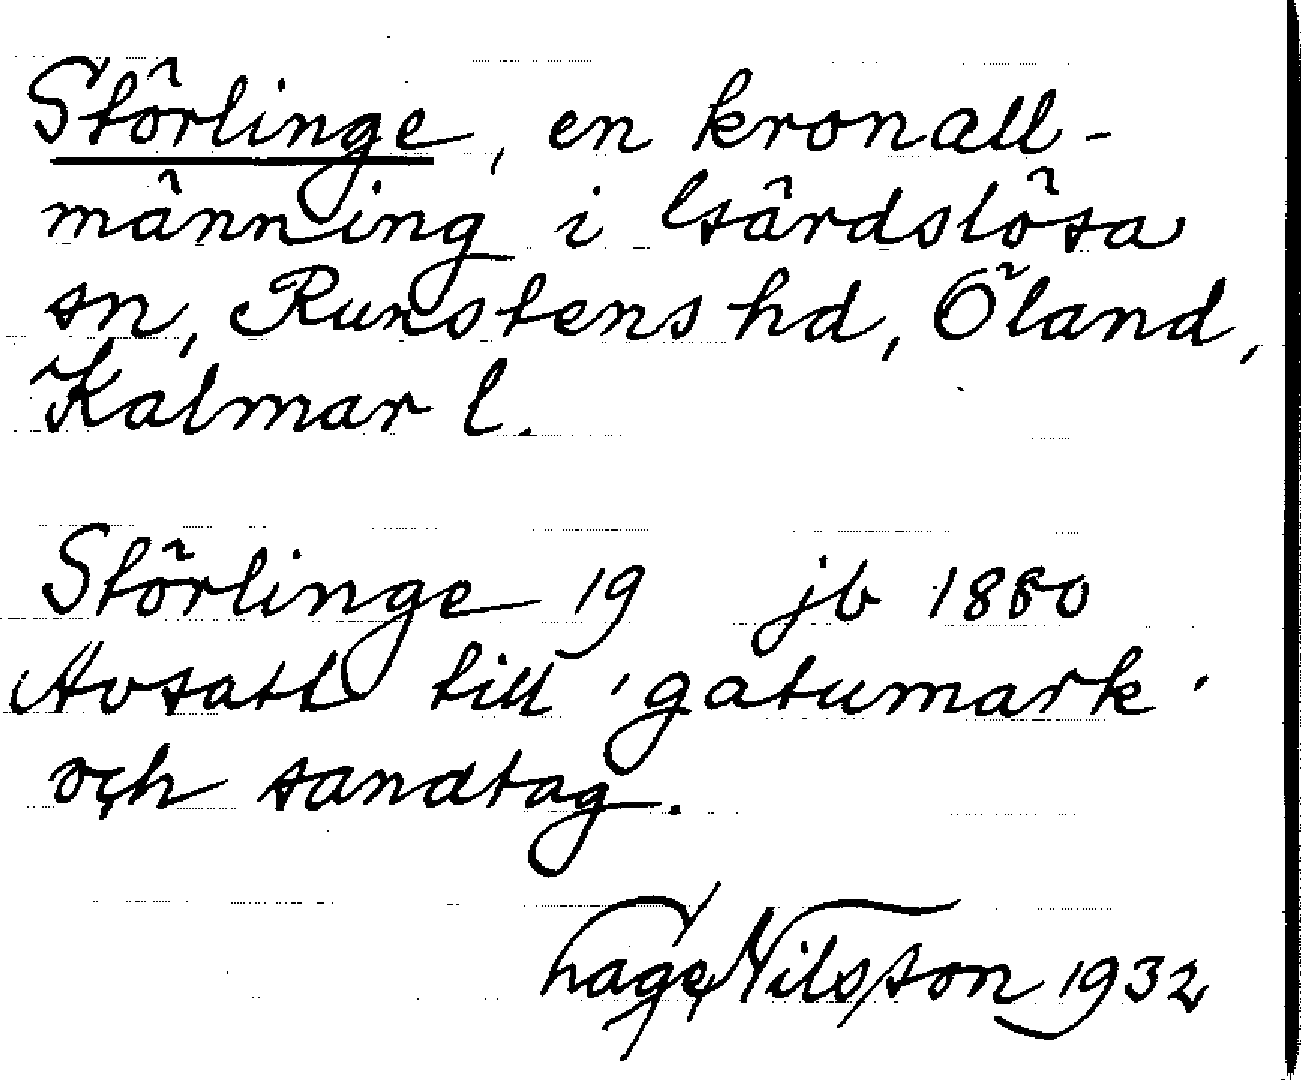 Störlinge, en kronall-
männing i Gärdslösa
sn, Runstens hd, Öland,
Kalmar l.
Störlinge 19 jb 1880
Avsatt till 'gatumark'
och sandtag.
hage Nilsson 1932